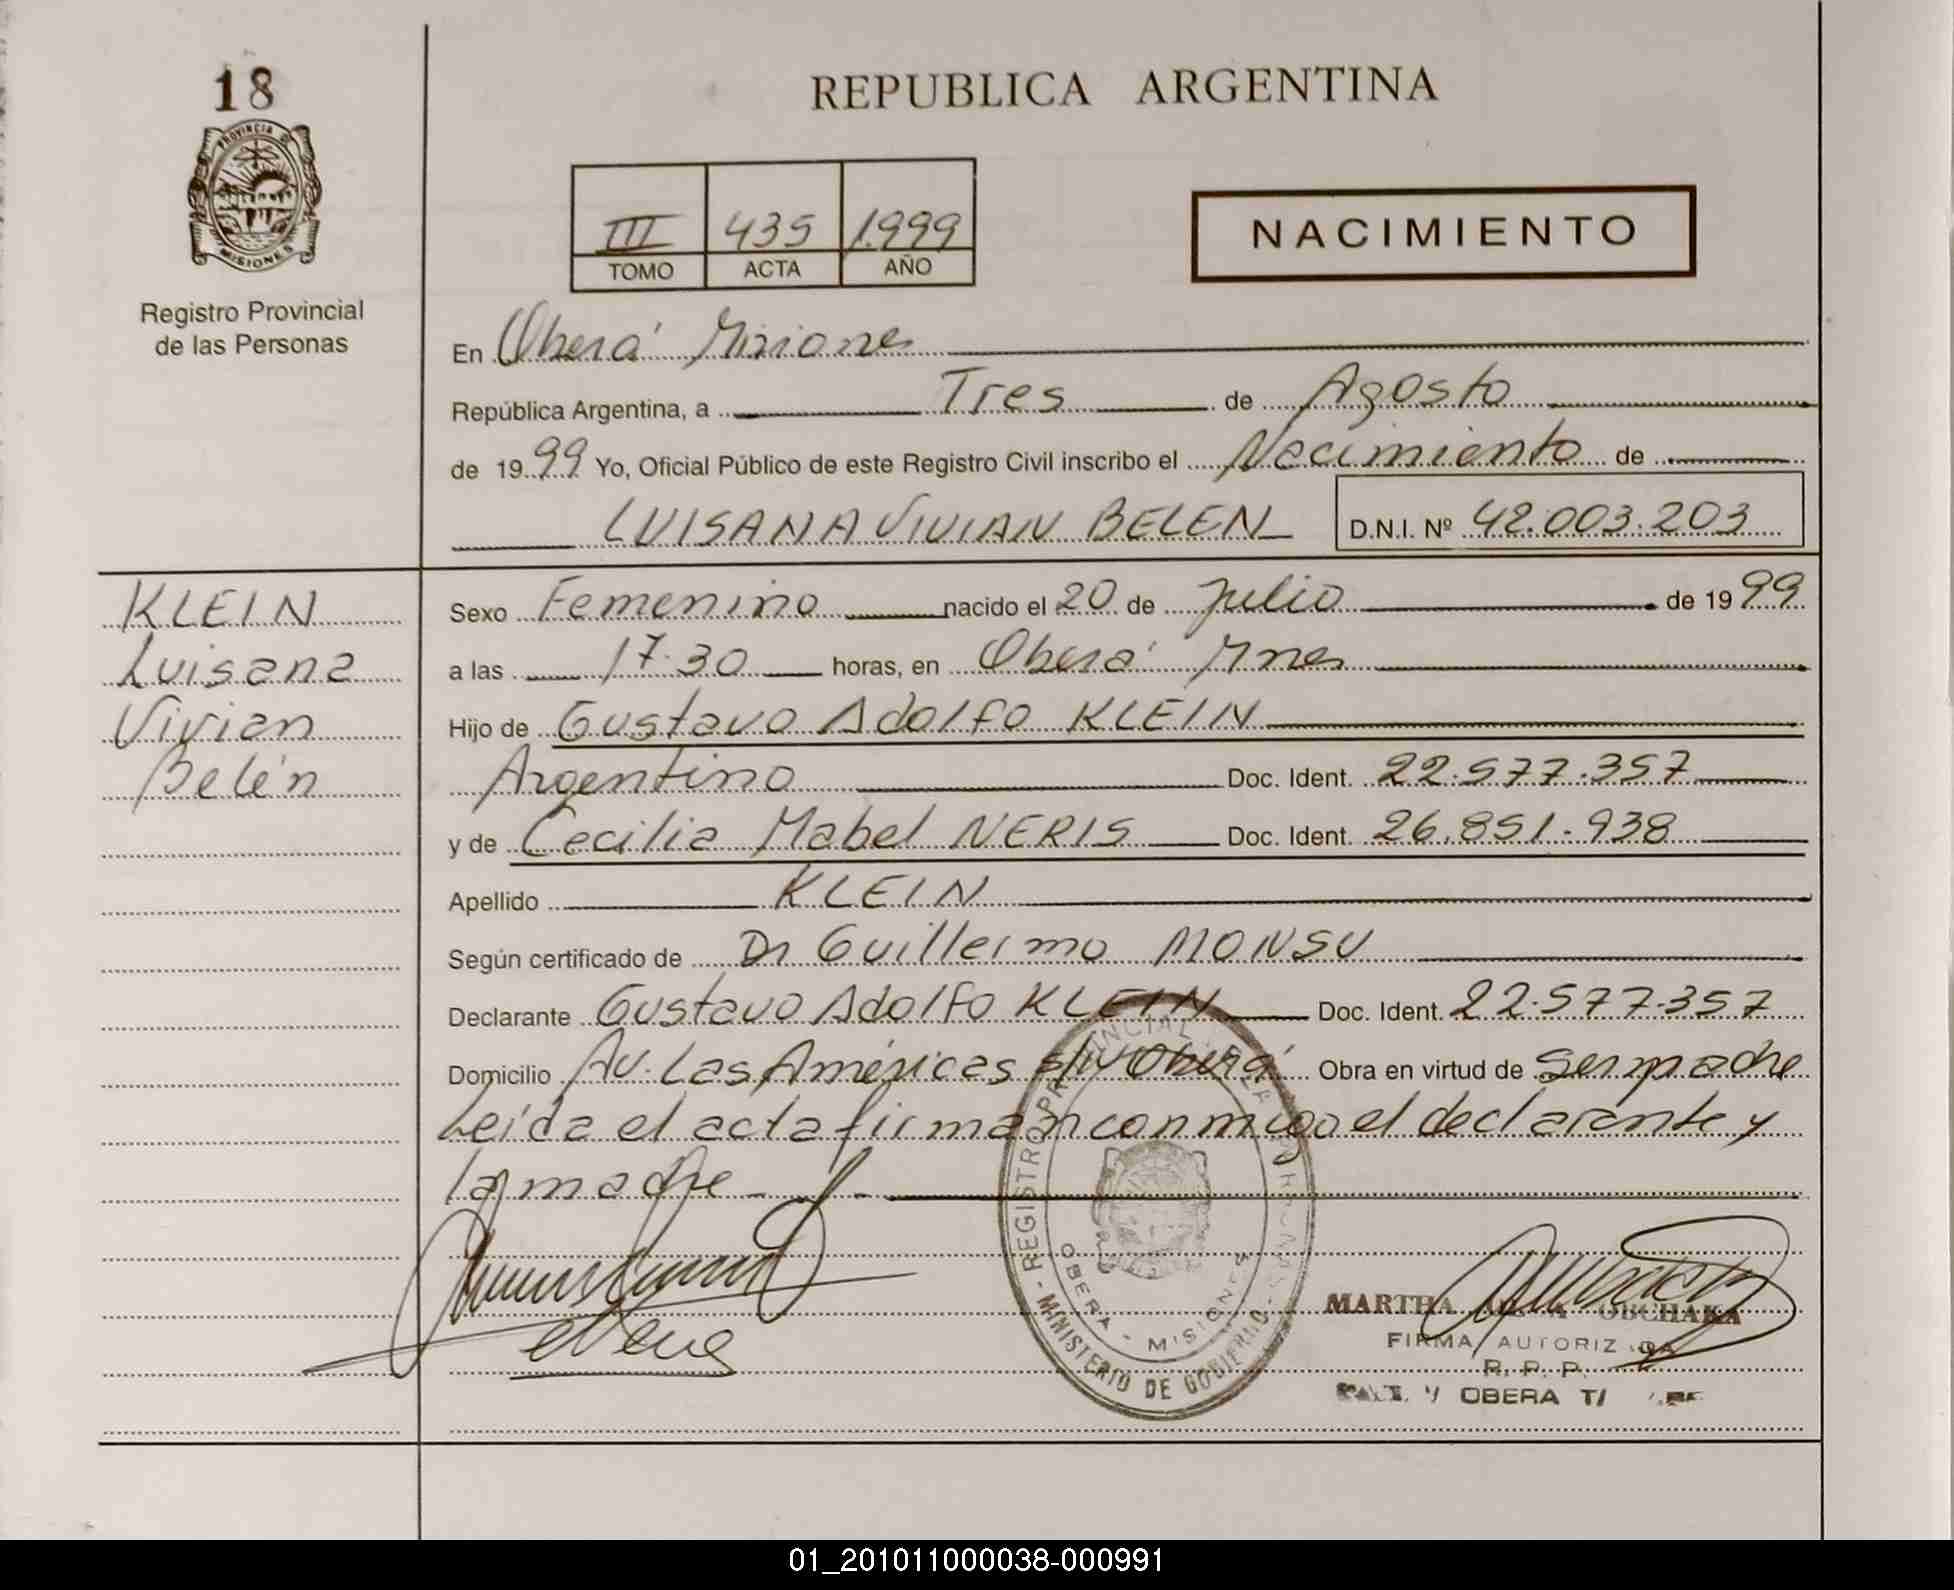 18
PROVINCIA D
MISIONES
Registro Provincial
de las Personas
REPUBLICA ARGENTINA
III 435 1.999
TOMO ACTA AÑO
NACIMIENTO
En Oberá Misiones
República Argentina, a Tres de Agosto
de 1999 Yo, Oficial Público de este Registro Civil inscribo el Nacimiento de
LUISANA VIVIAN BELEN D.N.I. Nº 42.003.203
KLEIN
Luisana
Vivian
Belén
Sexo Femenino nacido el 20 de Julio de 1999
a las 17.30 horas, en Oberá Mnes
Hijo de Gustavo Adolfo KLEIN
Argentino Doc. Ident. 22.577.357
y de Cecilia Mabel NERIS Doc. Ident. 26.851.938
Apellido KLEIN
Según certificado de Dr Guillermo MONSU
Declarante Gustavo Adolfo KLEIN Doc. Ident. 22.577.357
Domicilio Av. Las Américas s/n Oberá Obra en virtud de ser padre
Leída el acta firman conmigo el declarante y
la madre
REGISTRO PROVINCIAL DE LAS PERSONAS - MINISTERIO DE GOBIERNO -
OBERA - MISIONES
MARTHA OBCHAKA
FIRMA AUTORIZ DA
R. P. P.
OBERA
01_201011000038-000991